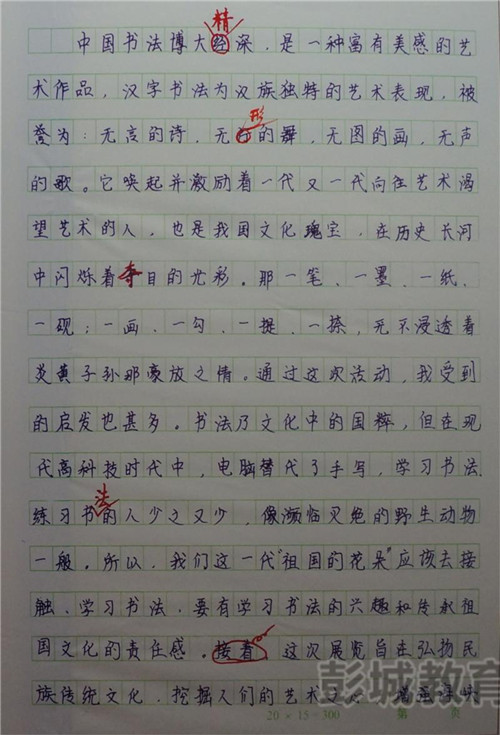 精
中国书法博大经深，是一种富有美感的艺
术作品，汉字书法为汉族独特的艺术表现，被
形
誉为：无言的诗，无行的舞，无图的画，无声
的歌。它唤起并激励着一代又一代向往艺术渴
望艺术的人，也是我国文化瑰宝，在历史长河
中闪烁着夺目的光彩。那一笔、一墨、一纸、
一砚；一画、一勾、一提、一捺，无不浸透着
炎黄子孙那豪放之情。通过这次活动，我受到
的启发也甚多。书法乃文化中的国粹，但在现
代高科技时代中，电脑替代了手写，学习书法、
法
练习书的人少之又少，像濒临灭绝的野生动物
一般。所以，我们这一代"祖国的花朵"应该去接
触、学习书法，要有学习书法的兴趣和传承祖
国文化的责任感。接着，这次展览旨在弘扬民
族传统文化，挖掘人们的艺术
彭城教育
20×15=300 第 页